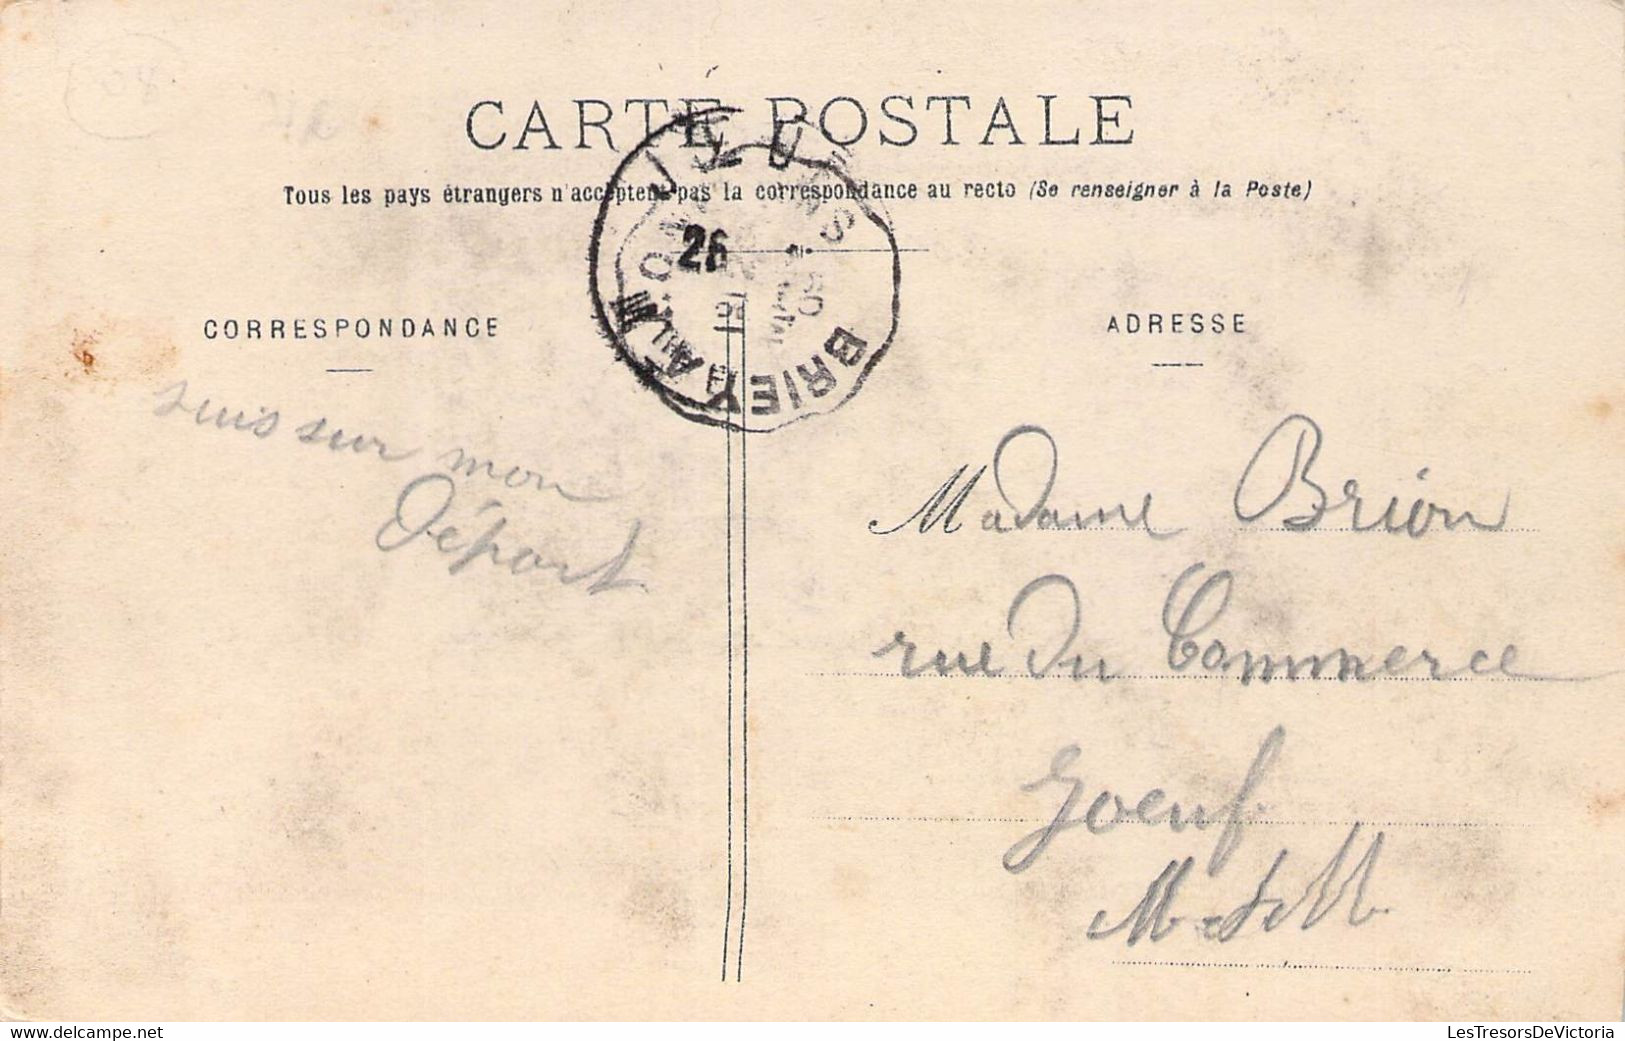 CARTE POSTALE
Tous les pays étrangers n'acceptent pas la correspondance au recto (Se renseigner à la Poste)
26
BRIEY
CORRESPONDANCE
ADRESSE
suis sur mon
Départ
Madame Brion
rue Du Commerce
Joeuf
M-et-M
www.delcampe.net
LesTresorsDeVictoria